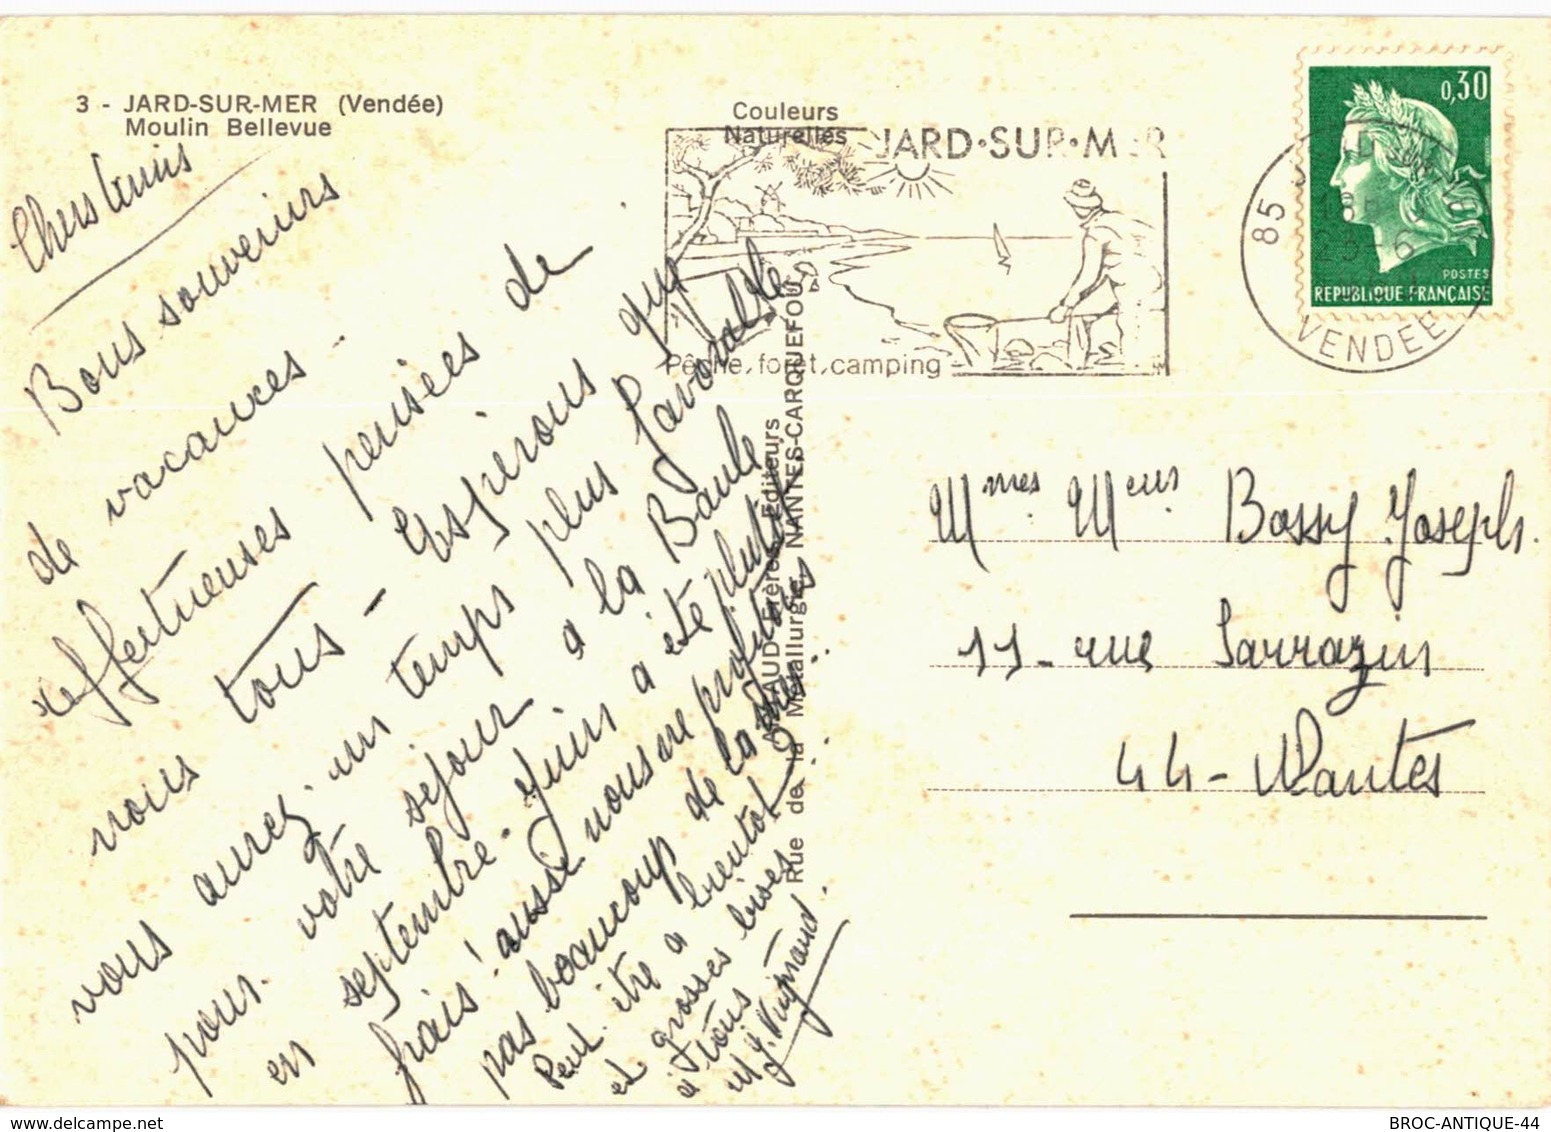 3 - JARD-SUR-MER (Vendée)
Moulin Bellevue
Couleurs
Naturelles
JARD·SUR·MER
Pêche, foret, camping
0,30
POSTES
REPUBLIQUE FRANÇAISE
85
VENDEE
Chers amis
Bons souvenirs
de vacances -
affectueuses pensées de
nous tous - Espérons que
vous aurez un temps plus favorable
pour votre séjour a la Baule
en septembre - Juin a été plutôt
frais ! aussi nous ne profitons
pas beaucoup de la mer..
Peut être a bientot
et grosses bises
a tous
Mmes Meur Bossy Joseph.
11 - rue Sarrazin
44 - Nantes
Frères, Editeurs
Rue de la Métallurgie, NANTES-CARQUEFOU
BROC-ANTIQUE-44